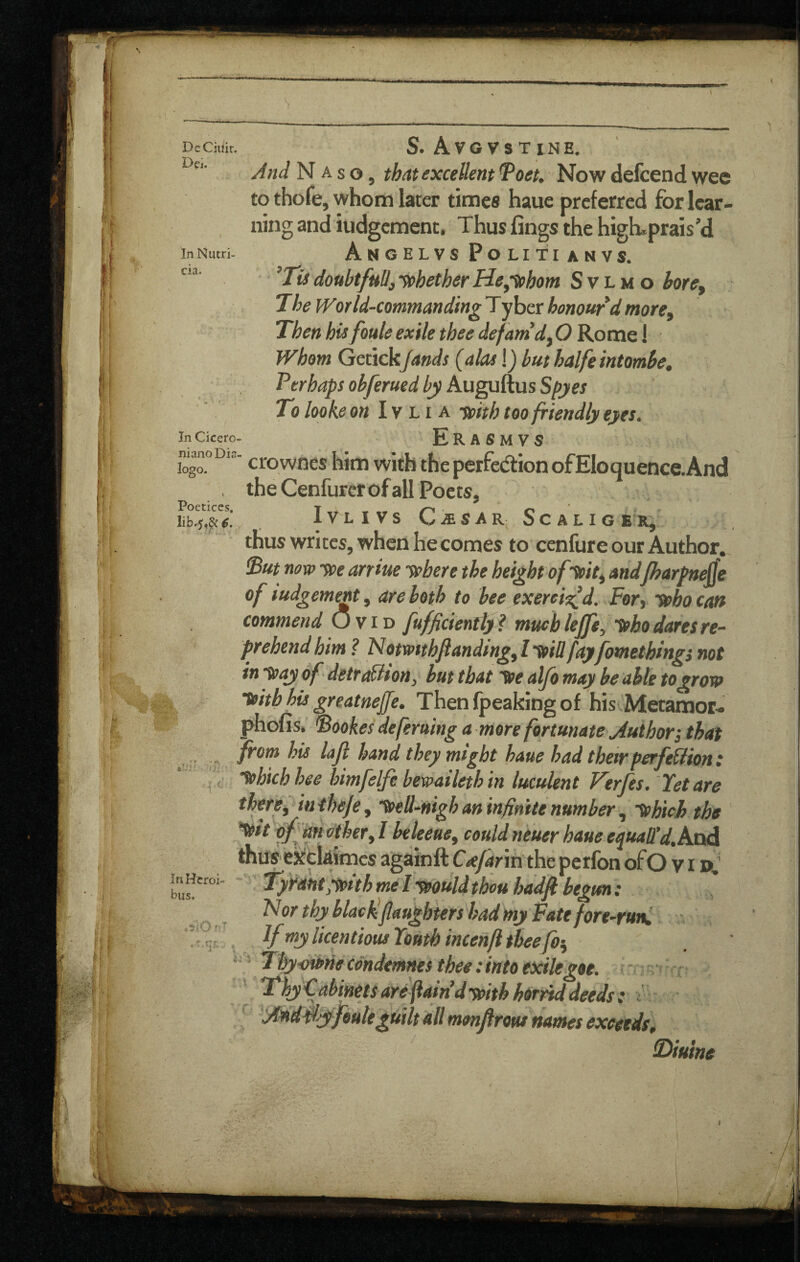 De Ciuit.
Dei.
S. AVGVSTINE.
And NASO, that excellent Poet. Now deſcend wee
to thoſe, whom later times haue preferred for lear-
ning and iudgement. Thus ſings the high-prais'd
In Nutri-
cia.
ANGELVS POLITIANVS.
'Tis doubtfull, whether He, whom SVLMO bore,
The World-commanding Tyber honour'd more,
Then his foule exile thee defam'd, O Rome!
Whom Getick ſands (alas!) but halfe intombe.
Perhaps obſerued by Auguſtus Spyes
To looke on IVLIA with too friendly eyes.
In Cicero-
niano Dia-
logo.
ERASMVS
crownes him with the perfection of Eloquence. And
the Cenſurer of all Poets,
Poetices.
lib. 5, & 6.
IVLIVS CÆSAR SCALIGER,
thus writes, when he comes to cenſure our Author.
But now we arriue where the height of wit, and ſharpneſſe
of iudgement, are both to bee exerciz'd. For, who can
commend OVID ſufficiently? much leſſe, who dares re-
prehend him? Notwithſtanding, I will ſay ſomethings not
in way of detraction, but that we alſo may be able to grow
with his greatneſſe. Then ſpeaking of his Metamor-
phoſis. Bookes deſeruing a more fortunate Author; that
from his laſt hand they might haue had their perfection:
which hee himſelfe bewaileth in luculent Verſes. Yet are
there, in theſe, well-nigh an infinite number, which the
wit of another, I beleeue, could neuer haue equall'd. And
thus exclaimes againſt Cæſar in the perſon of OVID.
In Heroi-
bus.
Tyrant, with me I would thou hadſt begun:
Nor thy black ſlaughters had my Fate fore-run.
If my licentious Youth incenſt thee ſo;
Thy owne condemnes thee: into exile goe.
Thy Cabinets are ſtain'd with horrid deeds:
And thy foule guilt all monſtrous names exceeds.
Diuine